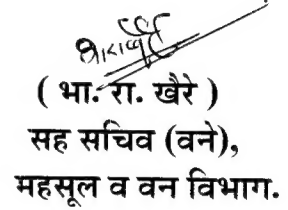 ( भा. रा. खैरे )
सह सचिव (वने),
महसूल व वन विभाग.